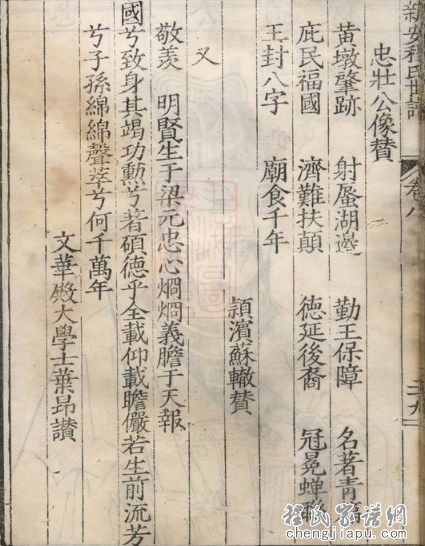 新安程氏世譜
卷八
二九
忠壯公像贊
黃墩肇跡 射蜃湖邊 勤王保障 名著青編
庇民福國 濟難扶顛 徳延後裔 冠冕蟬
王封八字 廟食千年
潁濱蘇轍贊
又
敬羨 明賢生于梁元忠心烱烱義膽于天報
國兮致身其竭功勲兮著碩德乎全載仰載瞻儼若生前流芳
兮子孫綿綿聲華兮何千萬年
文華殿大學士葉昂讃
程氏家谱网
chengjiapu.com